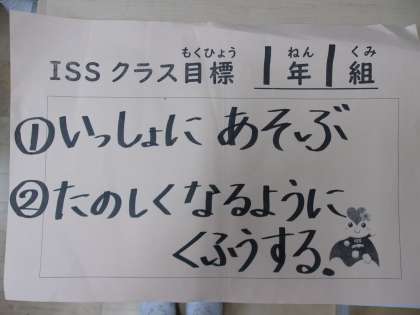 もくひょう ねん くみ
ISS クラス目標 1年1組
①いっしょに あそぶ
②たのしくなるように
くふうする.